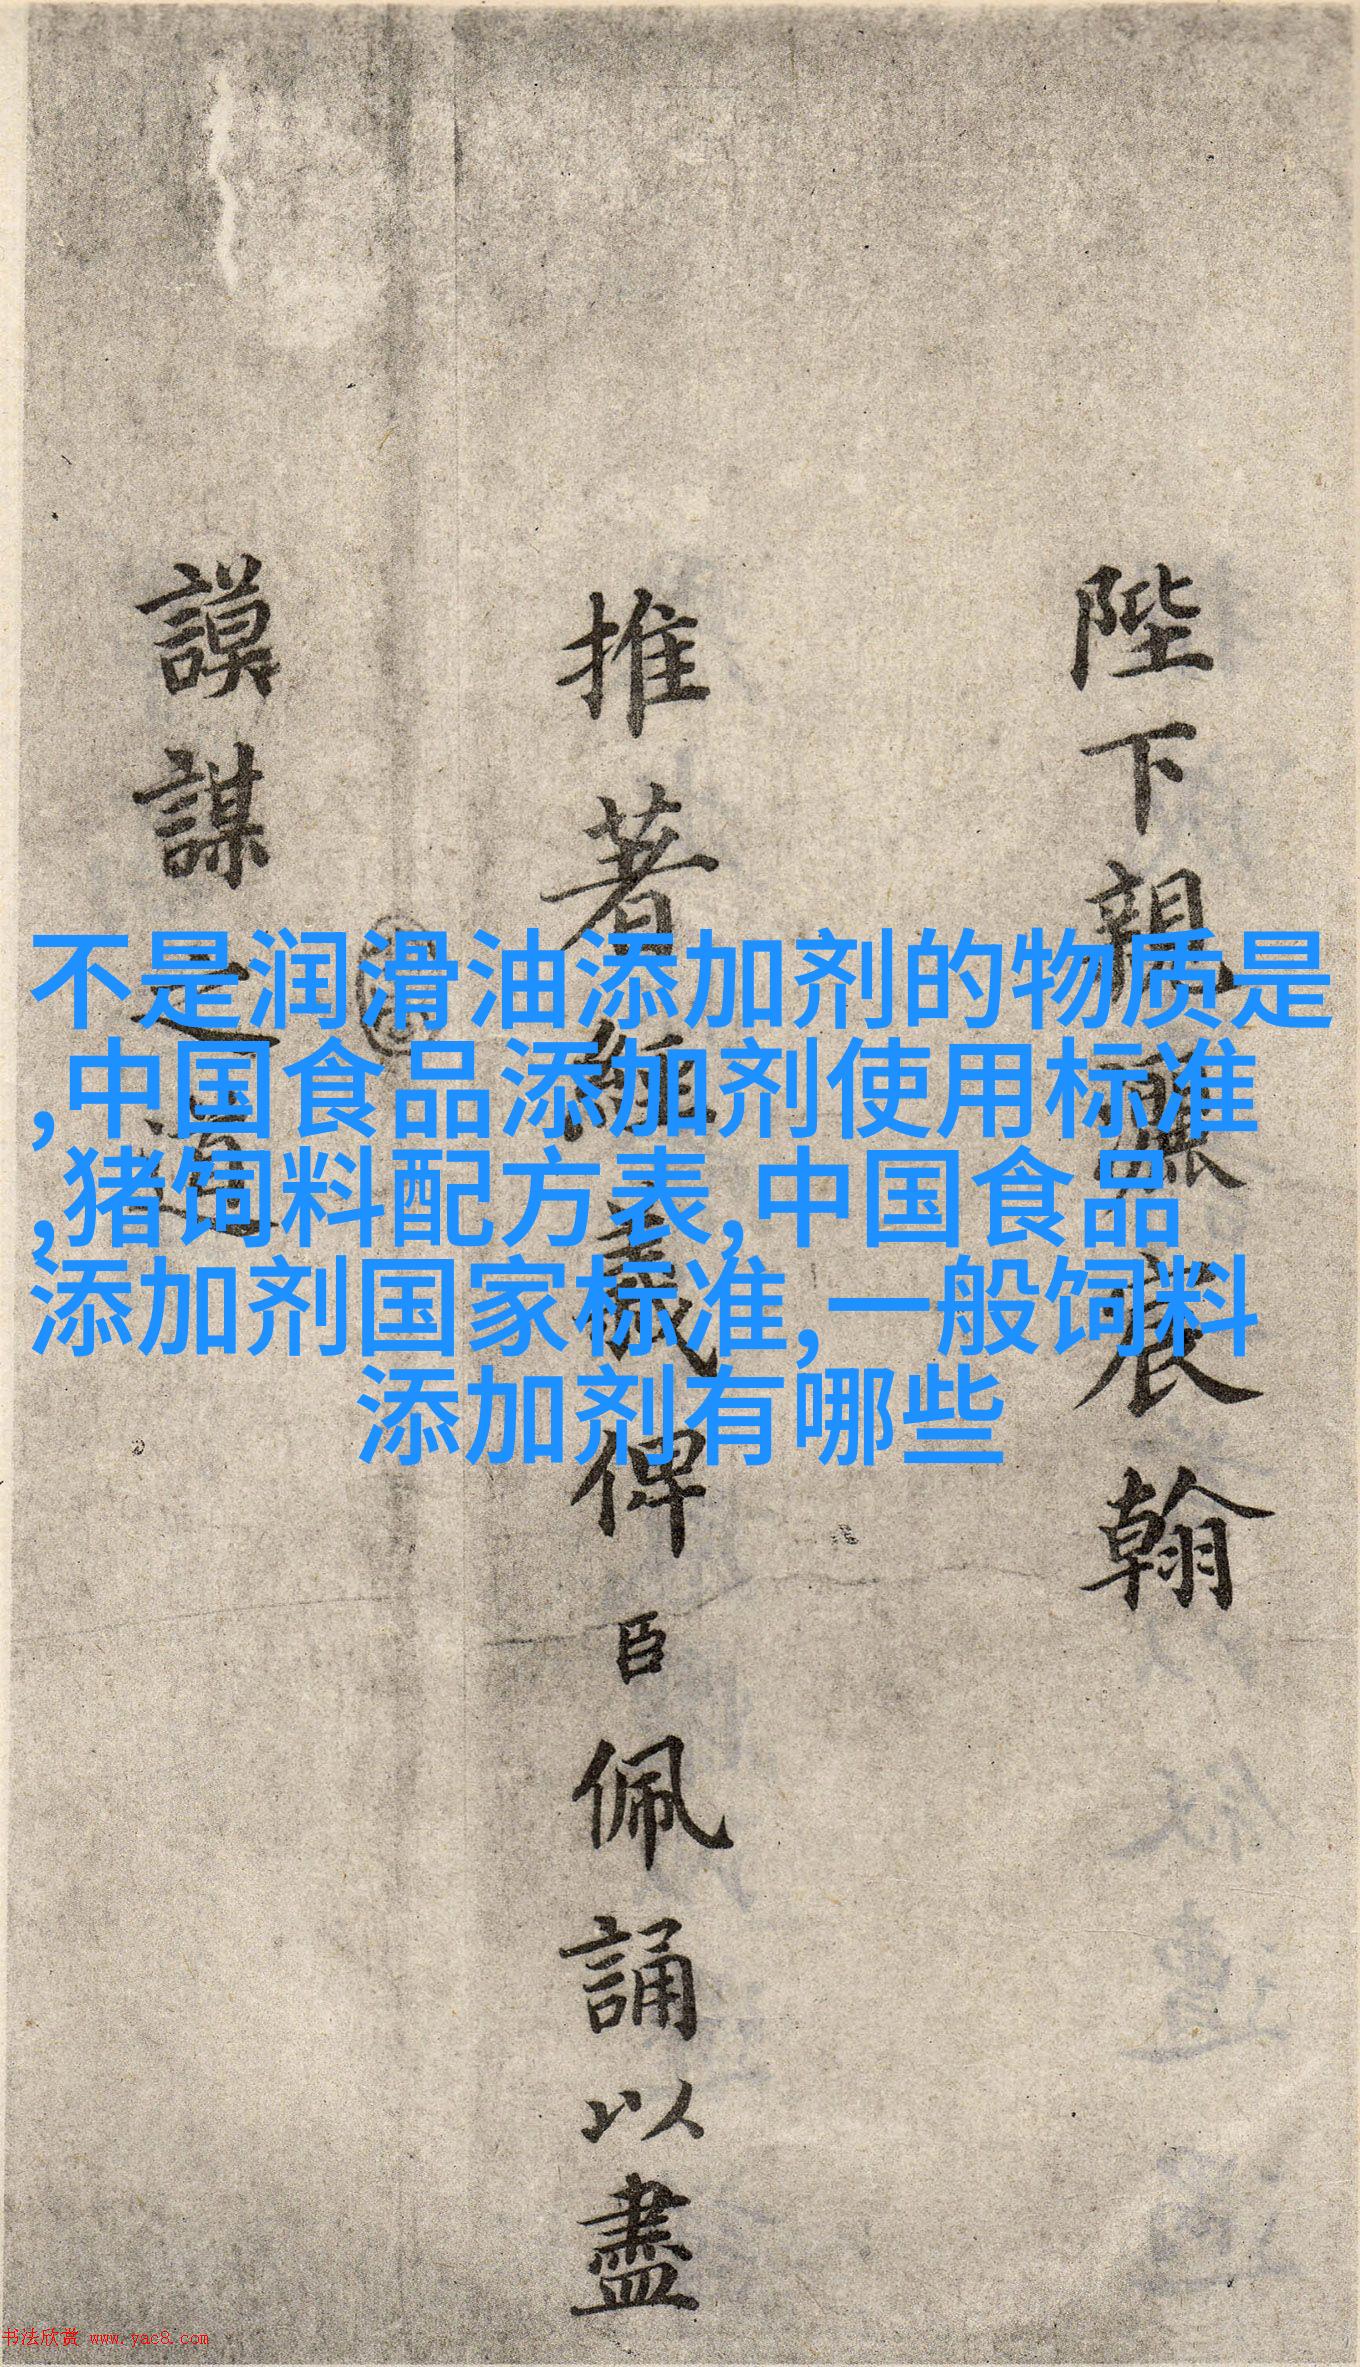 陛下親灑宸翰
推著經義俾臣佩誦以盡
謨謀之道
不是润滑油添加剂的物质是
,中国食品添加剂使用标准
,猪饲料配方表,中国食品
添加剂国家标准,一般饲料
添加剂有哪些
书法欣赏 www.yac8.com